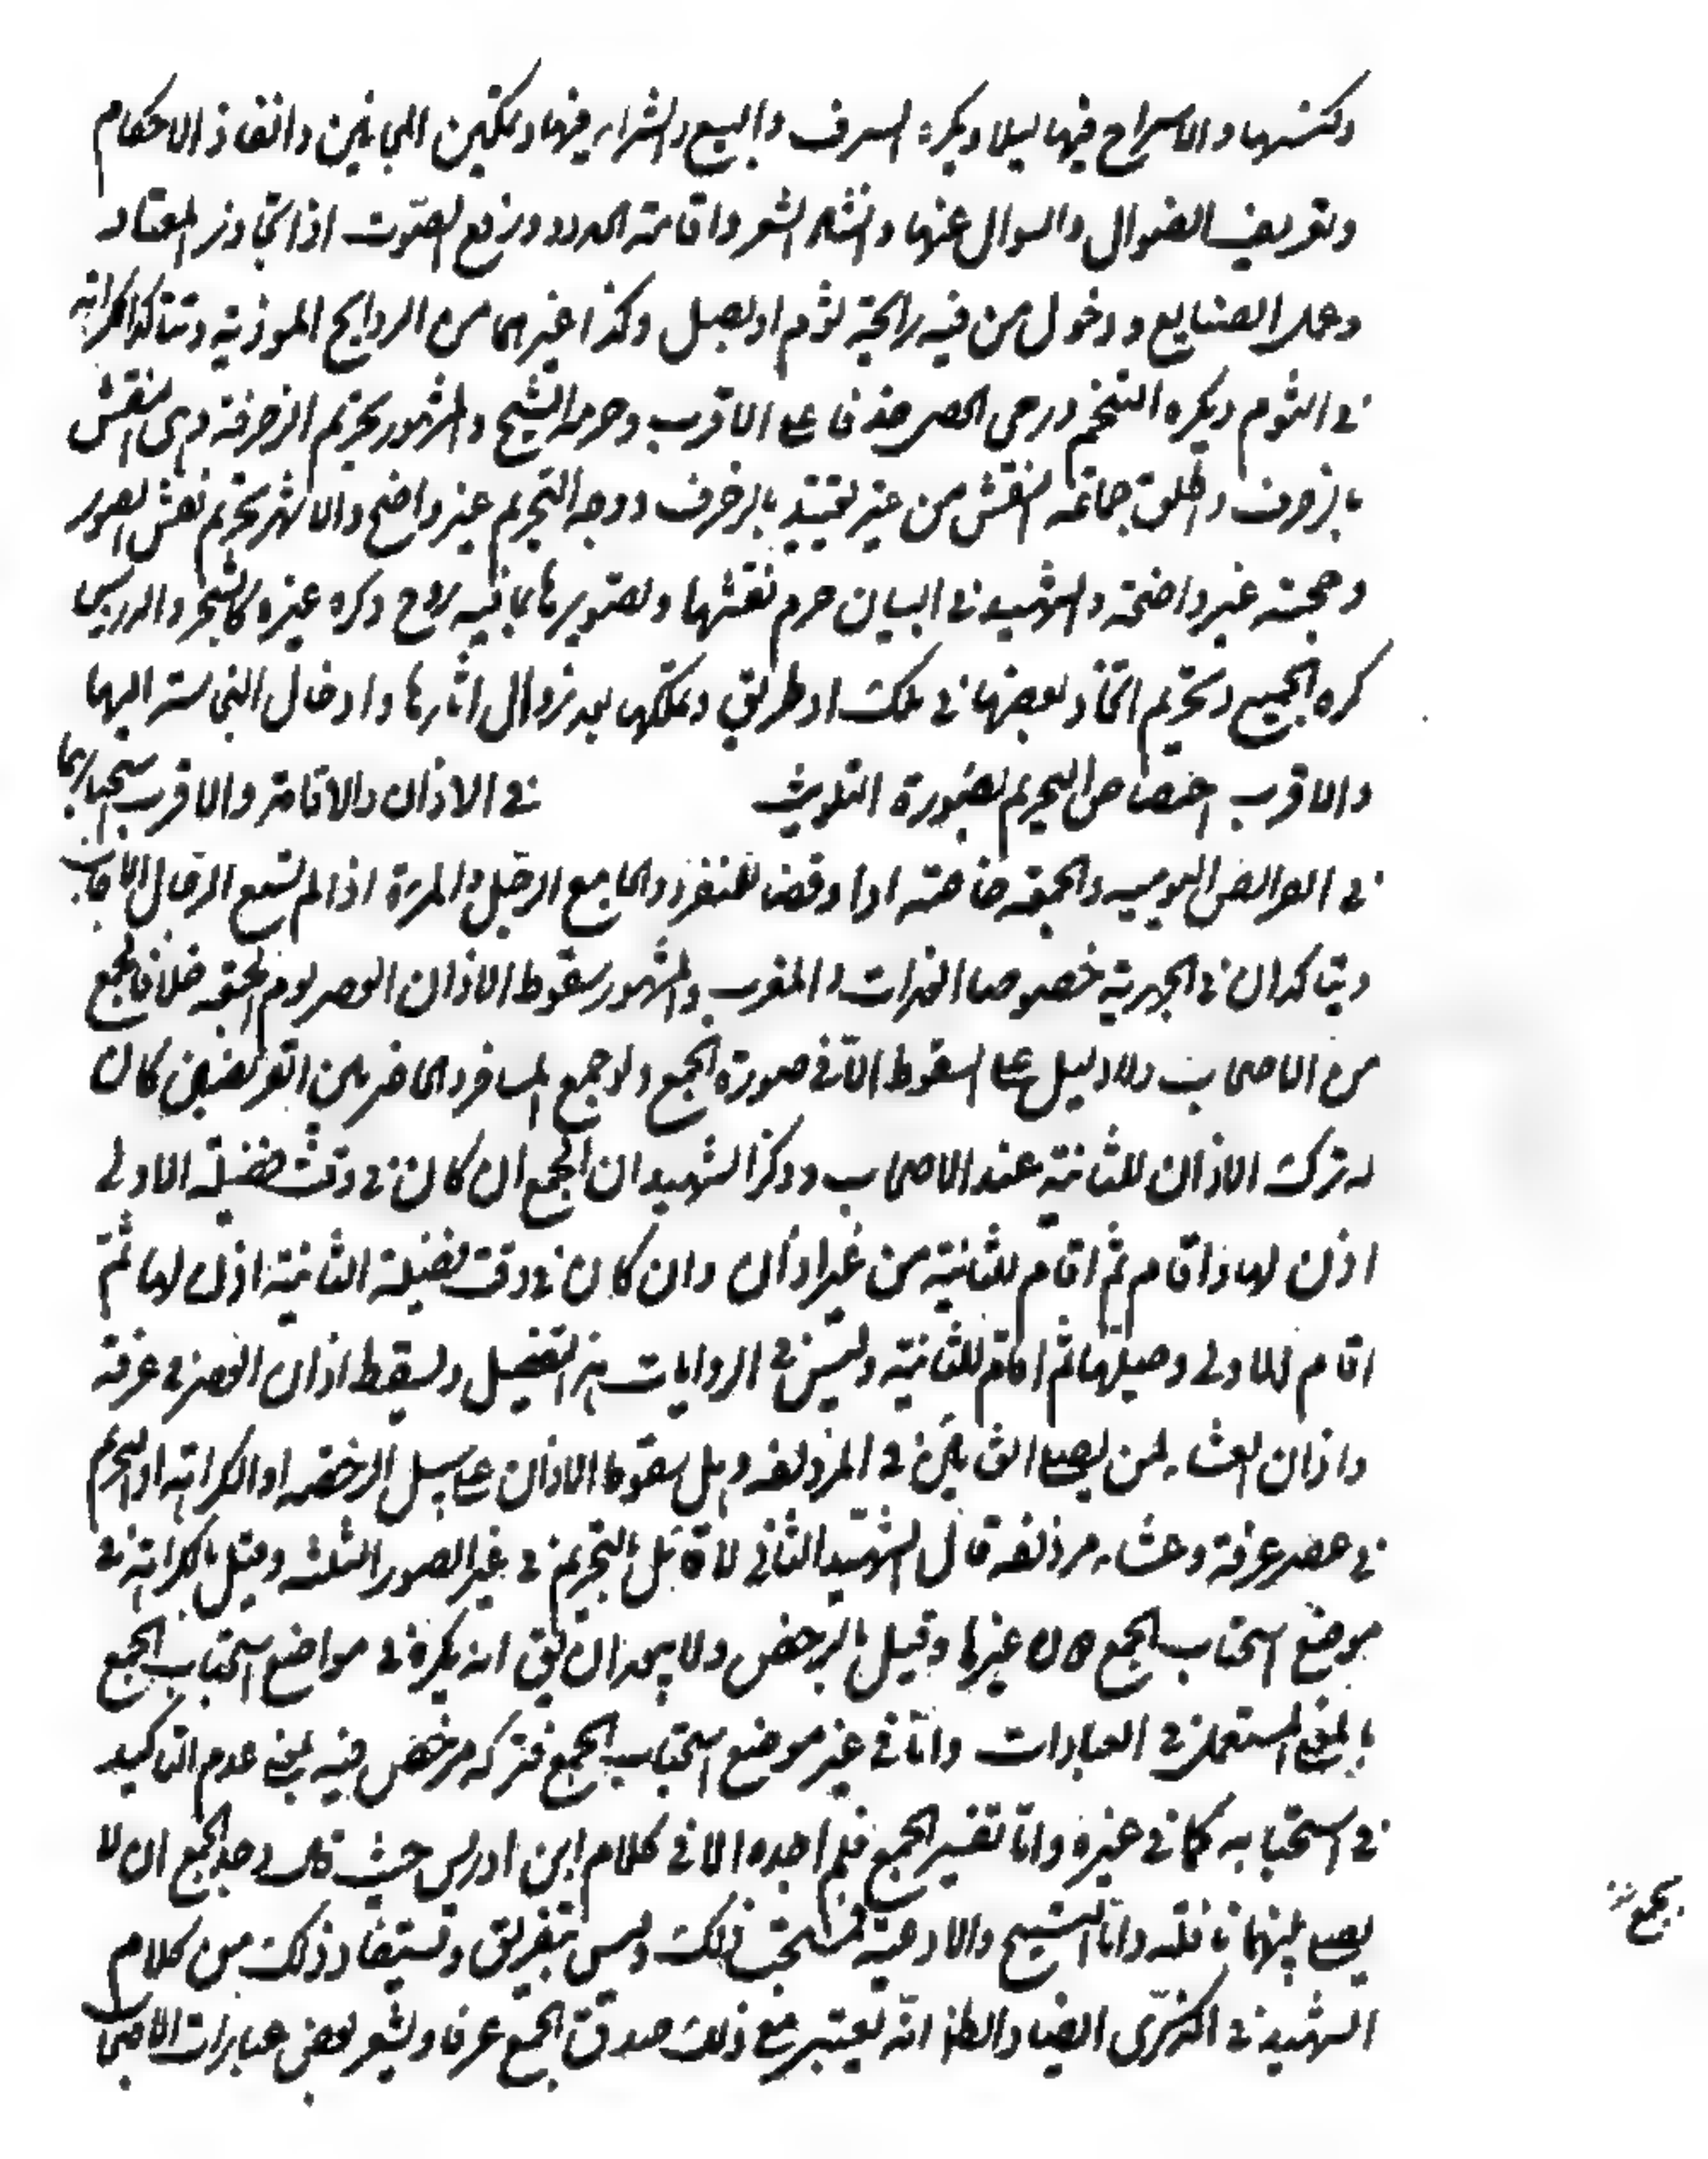 وكنسها والاسراج فيها ليلا ويكره السرف والبيع والشراء فيها وتمكين المجانين وانفاذ الاحكام
وتعريف الضوال والسوال عنها وانشاد الشعر واقامة الحدود ورفع الصوت اذا تجاوز المعتاد
وعمل الصنايع ودخول من فيه رائحة ثوم او بصل وكذا غيرهما من الروايح الموذية وتتاكد الكراهة
في الثوم ويكره التنخم ورمى الحصر حذفا على الاقرب وحرمه الشيخ والمشهور تحريم الزخرفة وهى النقش
بالزخرف واطلق جماعة النقش من غير تقييد بالزخرف ووجه التحريم غير واضح والاشهر تحريم نقش الصور
وحجته غير واضحة والشهيد في البيان حرم نقشها وتصويرها بما فيه روح وكره غيره كالشجر والدروس
كره الجميع وتحريم اتخاذ بعضها في ملك او طريق وتملكها بعد زوال اثارها وادخال النجاسة اليها
والاقرب اختصاص التحريم بصورة التلويث في الاذان والاقامة والاقرب استحبابهما
في الفرائض اليومية والجمعة خاصة اداء وقضاء للمنفرد والجامع الرجل والمرءة اذا لم تسمع الرجال الاجانب
ويتاكدان في الجهرية خصوصا الغداة والمغرب والمشهور سقوط الاذان العصر يوم الجمعة خلافا لجمع
من الاصحاب ولا دليل على السقوط الا في صورة الجمع ولو جمع المسافر والحاضر بين الفريضتين كان
له ترك الاذان للثانية عند الاصحاب وذكر الشهيد ان الجمع ان كان في وقت فضيلة الاولى
اذن لها واقام ثم اقام للثانية من غير اذان وان كان في وقت فضيلة الثانية اذن لها ثم
اقام للاولى وصليها ثم اقام للثانية وليس في الروايات هذا التفصيل ويسقط اذان العصر في عرفة
واذان العشاء لمن يصلى العشائين في المزدلفة وهل سقوط الاذان على سبيل الرخصة او الكراهة او التحريم
في عصر عرفة وعشاء مزدلفة قال الشهيد الثاني لا قائل بالتحريم في غير الصور الثلثة وقيل بالكراهة في
موضع استحباب الجمع دون غيرها وقيل بالرخص ولا يبعد ان يق انه يكره في مواضع استحباب الجمع
بالمعنى المستعمل في العبادات واما في غير موضع استحباب الجمع فتركه مرخص فيه بمعنى عدم التاكيد
في استحبابه كما في غيره واما تفسير الجمع فلم اجده الا في كلام ابن ادريس حيث قال في حد الجمع ان لا
يصلى بينهما نافلة واما التسبيح والادعية فمستحب ذلك وليس بتفريق وتستفاد ذلك من كلام
الشهيد في الذكرى ايضا والظ انه يعتبر مع ذلك صدق الجمع عرفا ويشعر بعض عبارات الاصحاب